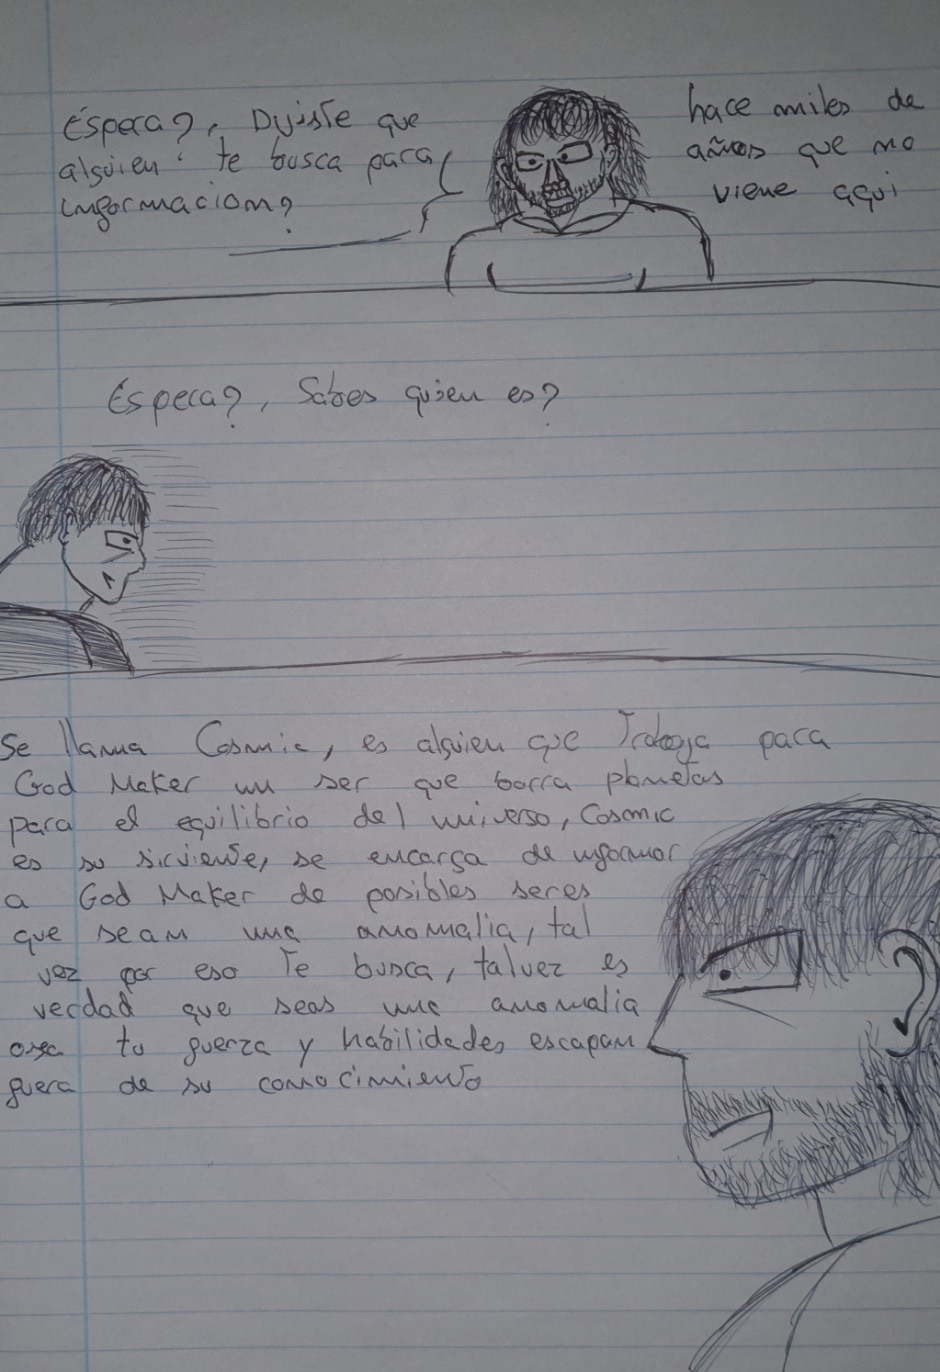 Espera?, Dijiste que
alguien te busca para
informacion?
hace miles de
años que no
viene aqui
Espera?, Sabes quien es?
Se llama Cosmic, es alguien que Trabaja para
God Maker un ser que borra planetas
para el equilibrio del universo, Cosmic
es su sirviente, se encarga de informar
a God Maker de posibles seres
que sean una anomalia, tal
vez por eso Te busca, talvez es
verdad que seas una anomalia
osea tu fuerza y habilidades escapan
fuera de su conocimiento